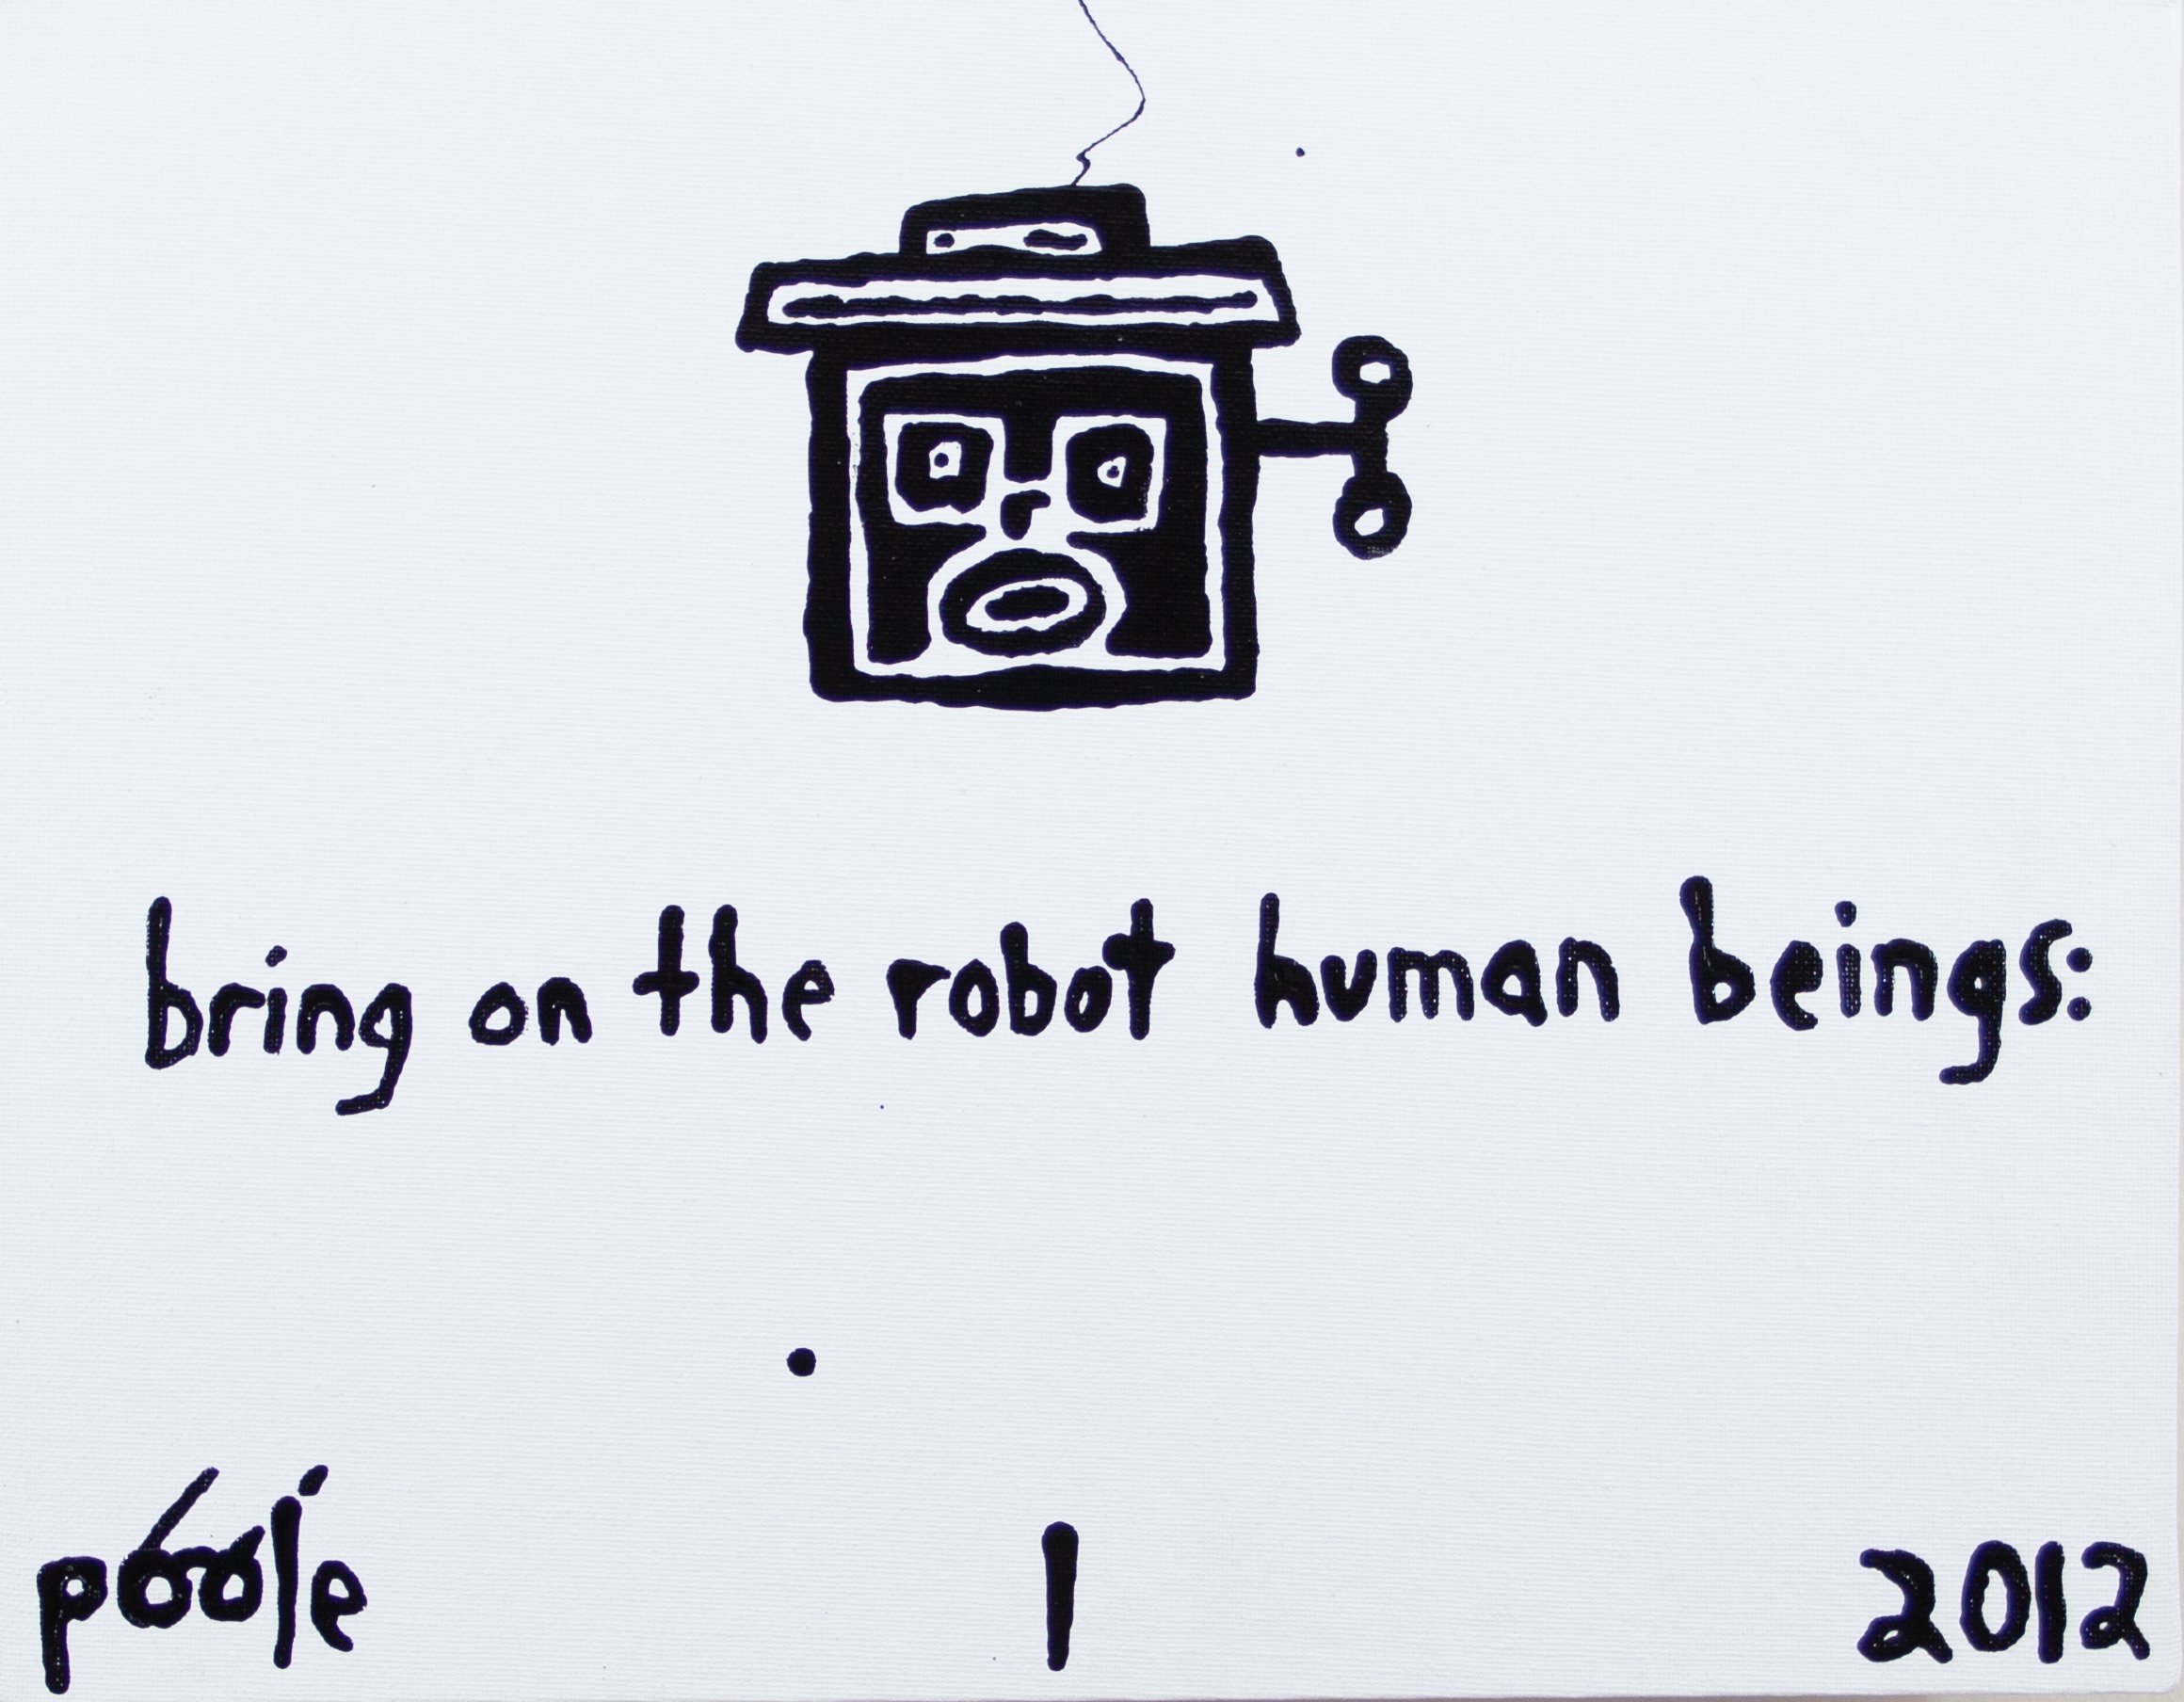 bring on the robot human beings:
poole 1 2012